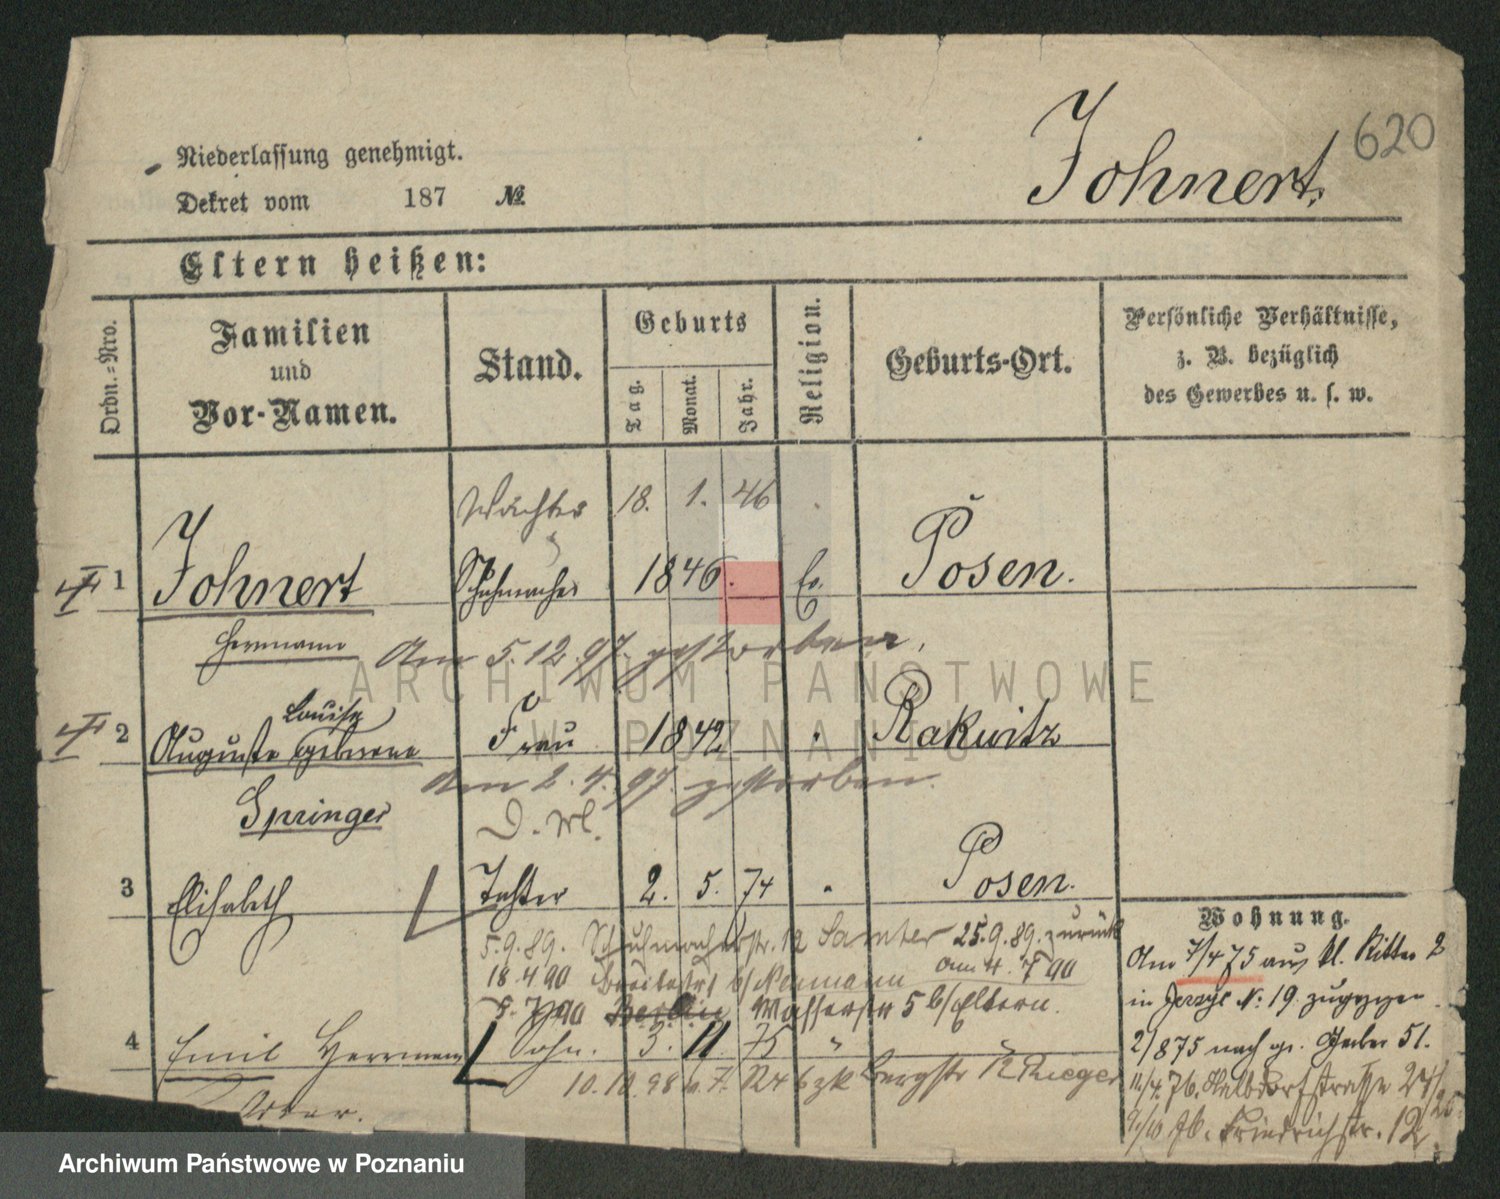 620
Johnert.
Niederlassung genehmigt.
Dekret vom 187 №
Eltern heißen:
Ordn.-Nro.
Familien
und
Vor-Namen.
Stand.
Geburts
Tag.
Monat.
Jahr.
Religion.
Geburts-Ort.
Persönliche Verhältnisse,
z. B. bezüglich
des Gewerbes u. s. w.
Wächter 18. 1. 46
1 Johnert Schuhmacher 1846. Ev. Posen.
Herrmann Am 5.12.97. gestorben.
Louise
2 Auguste geborene Frau 1842 " Rakwitz
Am 2.4.97. gestorben.
Springer
D. M.
3 Elisabeth Tochter 2. 5. 74 " Posen.
5.9.89. Schuhmacherstr. 12 Samter 25.9.89. zurück
18.4.90 Breitestr b/ Neumann am 4. 7 90
90 Berlin Wasserstr 5 b/ Eltern.
4 Emil Herrmann Sohn. 3. 11. 75 "
10.10.98 v. 7. Bergstr 12 Rieger
Wohnung.
Am 7/4 75 aus kl. Ritter 2
in Jerzyc N: 19. zugezogen.
2/8 75 nach gr. Gerber 51.
11/4. 76. Halbdorfstrasse
9/10 76. Friedrichstr. 12
ARCHIWUM PAŃSTWOWE
W POZNANIU
Archiwum Państwowe w Poznaniu